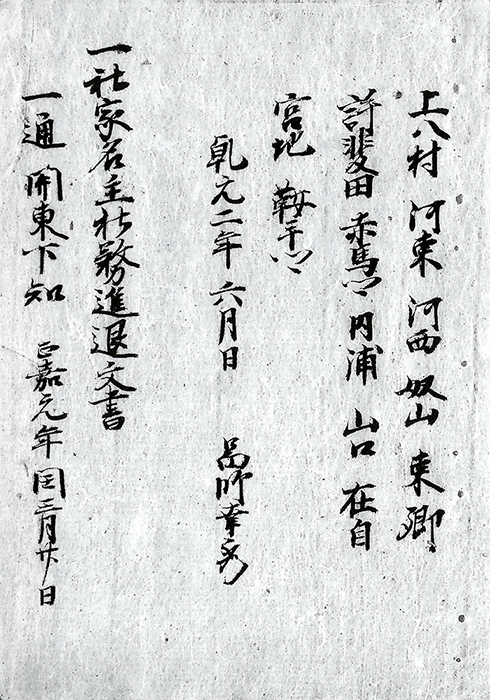 上八村 河東 河西 奴山 東郷
許斐田 赤馬〻 内浦 山口 在自
宮地 鞍手〻
乾元二年六月日 啚師幸秀
一社家名主社務進退文書
一通 関東下知 正嘉元年閏三月廿日